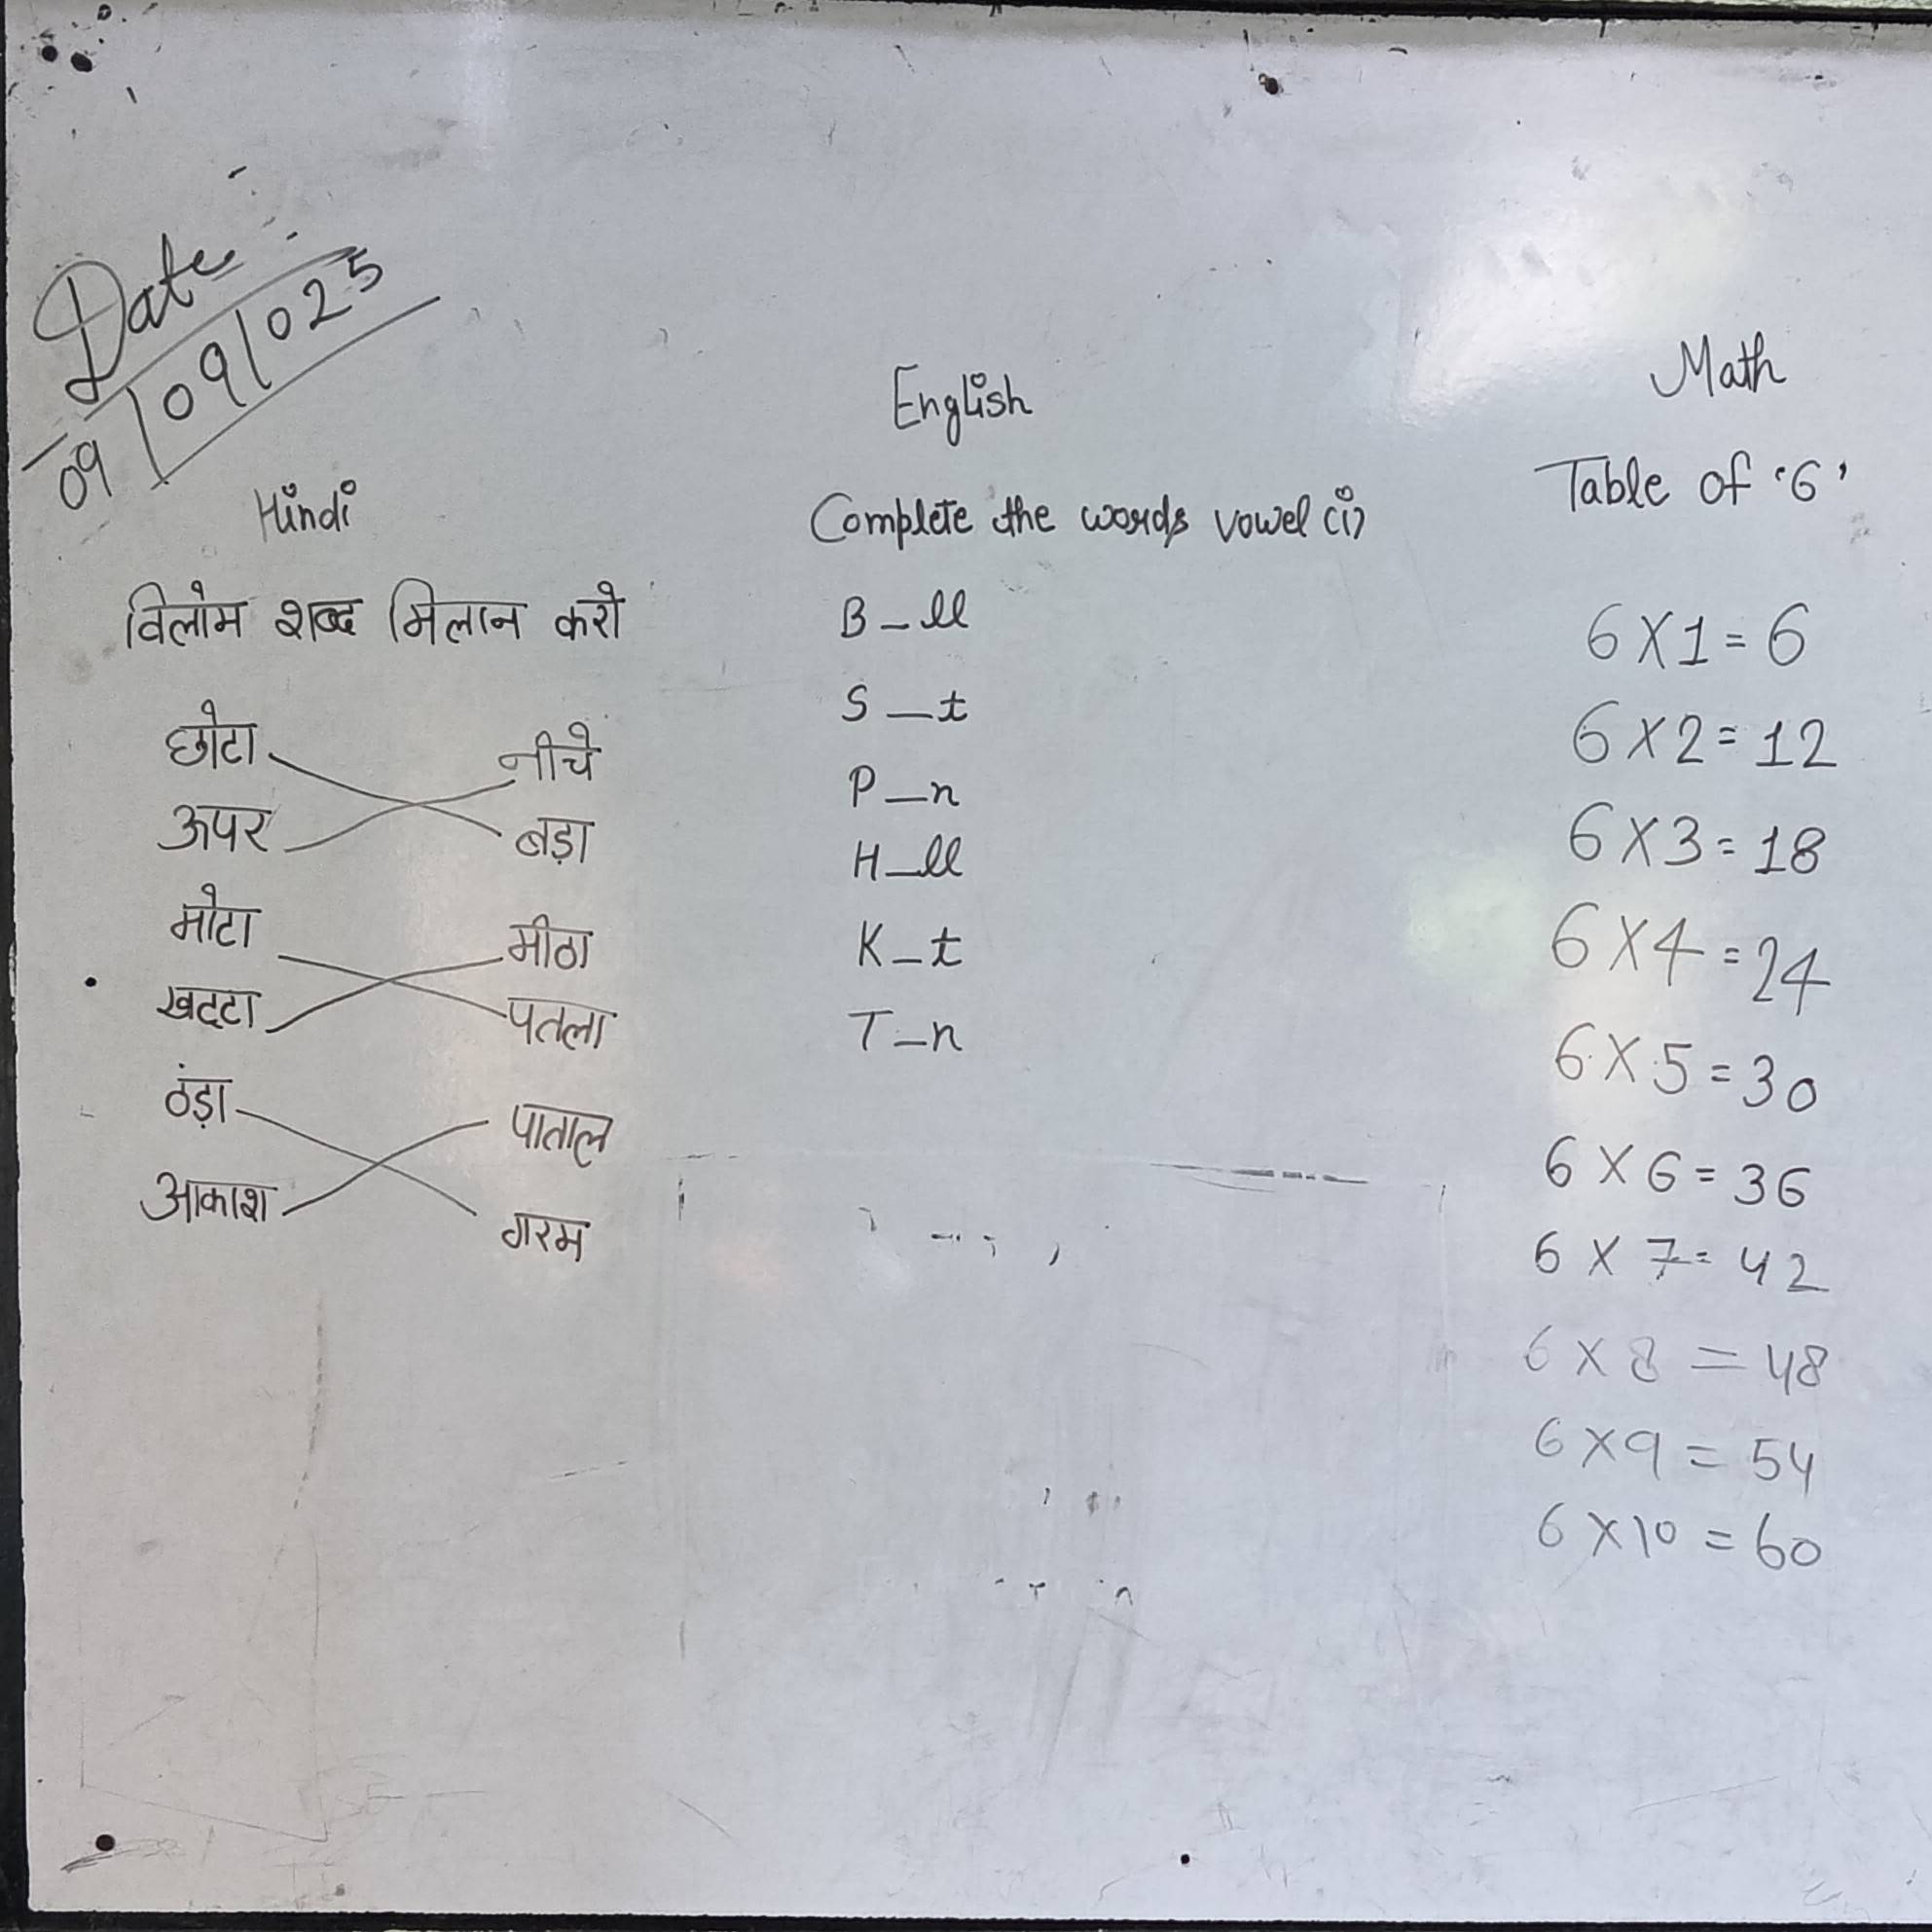 Date :
09/09/025
Hindi
विलोम शब्द मिलान करो
छोटा नीचे
ऊपर बड़ा
मोटा मीठा
खट्टा पतला
ठंड़ा पाताल
आकाश गरम
English
Complete the words vowel (i)
B_ll
S_t
P_n
H_ll
K_t
T_n
Math
Table of '6'
6X1=6
6X2=12
6X3=18
6X4=24
6X5=30
6X6=36
6X7=42
6X8=48
6X9=54
6X10=60